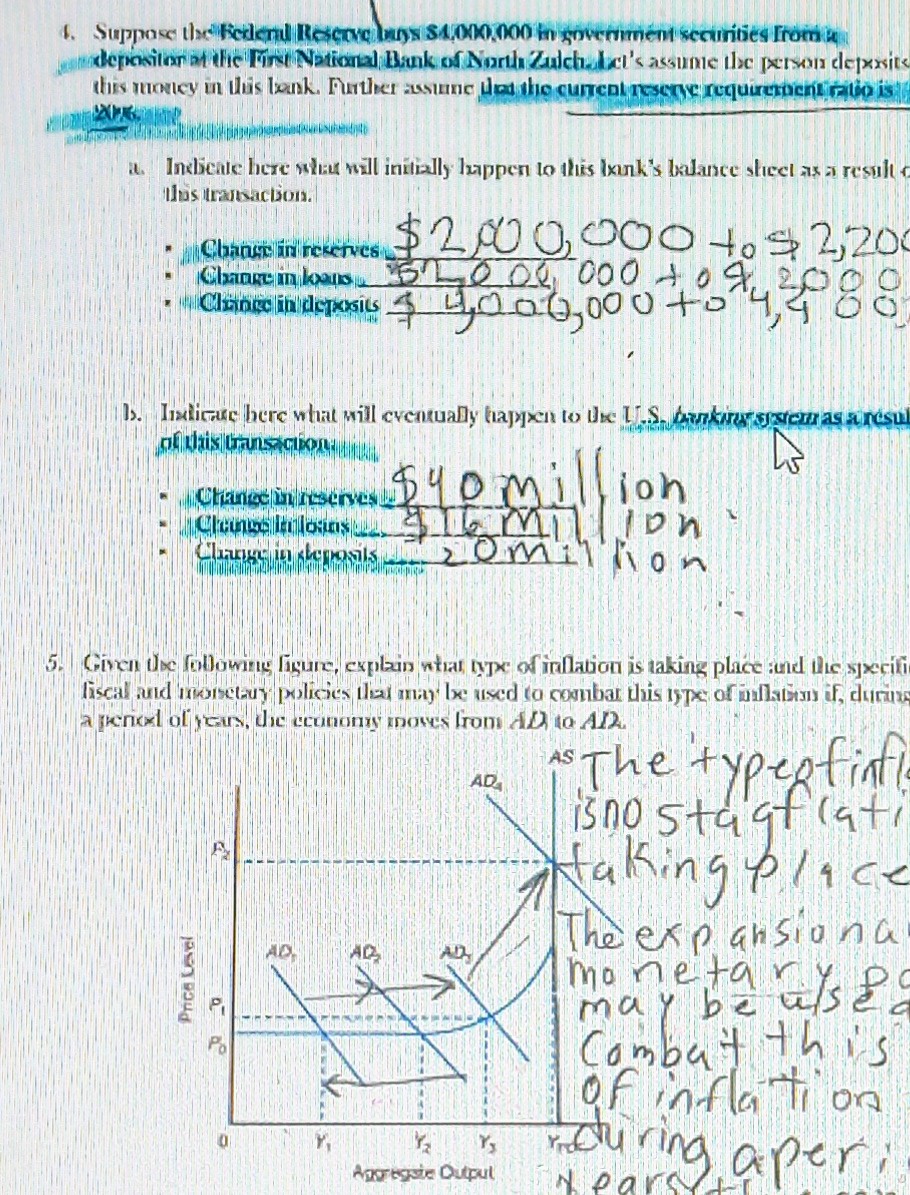 4. Suppose the Federal Reserve buys $4,000,000 in government securities from a
depositor at the First National Bank of North Zulch. Let's assume the person deposits
this money in this bank. Further assume that the current reserve requirement ratio is
20%.
a. Indicate here what will initially happen to this bank's balance sheet as a result
this transaction.
▪ Change in reserves $2,000,000 to $2,200
▪ Change in loans
▪ Change in deposits $4,000,000 to 4,400
b. Indicate here what will eventually happen to the U.S. banking system as a resul
of this transaction.
▪ Change in reserves $40 million
▪ Change in loans $16 million
▪ Change in deposits 20 million
5. Given the following figure, explain what type of inflation is taking place and the specifi
fiscal and monetary policies that may be used to combat this type of inflation if, during
a period of years, the economy moves from AD₁ to AD₂.
AS The type of infl
AD₄
is no stagflati
P₂
taking place
The expansiona
AD₁ AD₂ AD₃
monetary po
Price Level
P₁
may be used
P₀
Combat this
of inflation
0 Y₁ Y₂ Y₃
during a peri
Aggregate Output
years